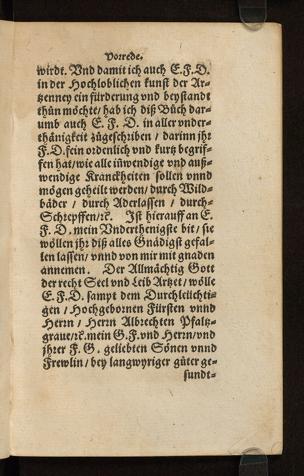 Vorrede.
wirdt. Vnd damit ich auch E.F.D.
in der Hochloblichen kunst der Ar-
tzenney ein fürderung vnd beystandt
thün möchte/ hab ich diß Büch dar-
umb auch E. F. D. in aller vnder-
thänigkeit zügeschriben / darinn jhr
F.D. fein ordenlich vnd kurtz begrif-
fen hat/ wie alle inwendige vnd auß-
wendige Kranckheiten sollen vnnd
mögen geheilt werden/ durch Wild-
bäder / durch Aderlassen / durch-
Schrepffen/ꝛc. Ist hierauff an E.
F. D. mein Vnderthenigste bit/ sie
wöllen jhr diß alles Gnädigst gefal-
len lassen/ vnnd von mir mit gnaden
annemen. Der Allmächtig Gott
der recht Seel vnd Leib Artzet/ wölle
E.F.D. sampt dem Durchleüchti-
gen / Hochgebornen Fürsten vnnd
Herrn / Herrn Albrechten Pfaltz-
graue/ꝛc. mein G.F. vnd Herrn/vnd
jhrer F. G. geliebten Sönen vnnd
Frewlin/ bey langwyriger güter ge-
sundt-